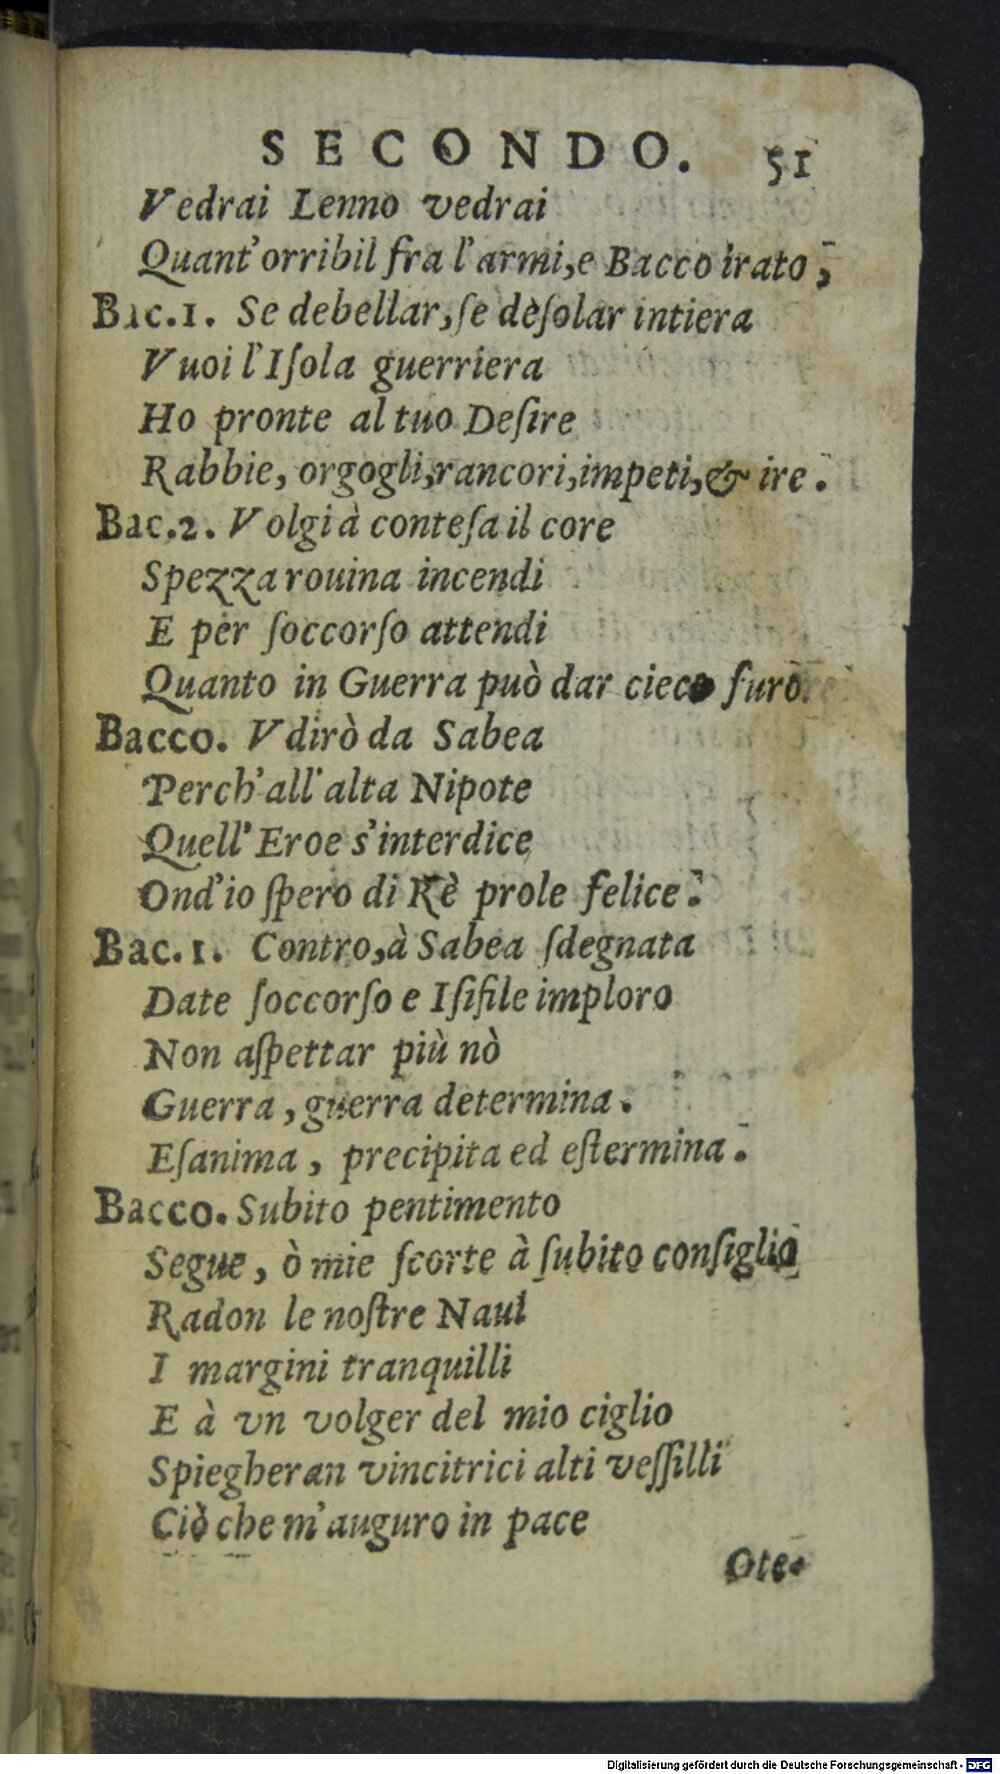 SECONDO. 51
Vedrai Lenno vedrai
Quant'orribil fra l'armi,e Bacco irato,
Bac.1. Se debellar,ſe deſolar intiera
Vuoi l'Iſola guerriera
Ho pronte al tuo Deſire
Rabbie, orgogli,rancori,impeti,& ire.
Bac.2. Volgi à conteſa il core
Spezza rouina incendi
E per ſoccorſo attendi
Quanto in Guerra può dar cieco furore
Bacco. Vdirò da Sabea
Perch'all'alta Nipote
Quell'Eroe s'interdice
Ond'io ſpero di Rè prole felice.
Bac.1. Contro,à Sabea ſdegnata
Date ſoccorſo e Iſifile imploro
Non aſpettar più nò
Guerra,guerra determina.
Eſanima, precipita ed eſtermina.
Bacco. Subito pentimento
Segue, ò mie ſcorte à ſubito conſiglio
Radon le noſtre Naui
I margini tranquilli
E à vn volger del mio ciglio
Spiegheran vincitrici alti veſſilli
Ciò che m'auguro in pace
Ote-
Digitalisierung gefördert durch die Deutsche Forschungsgemeinschaft - DFG